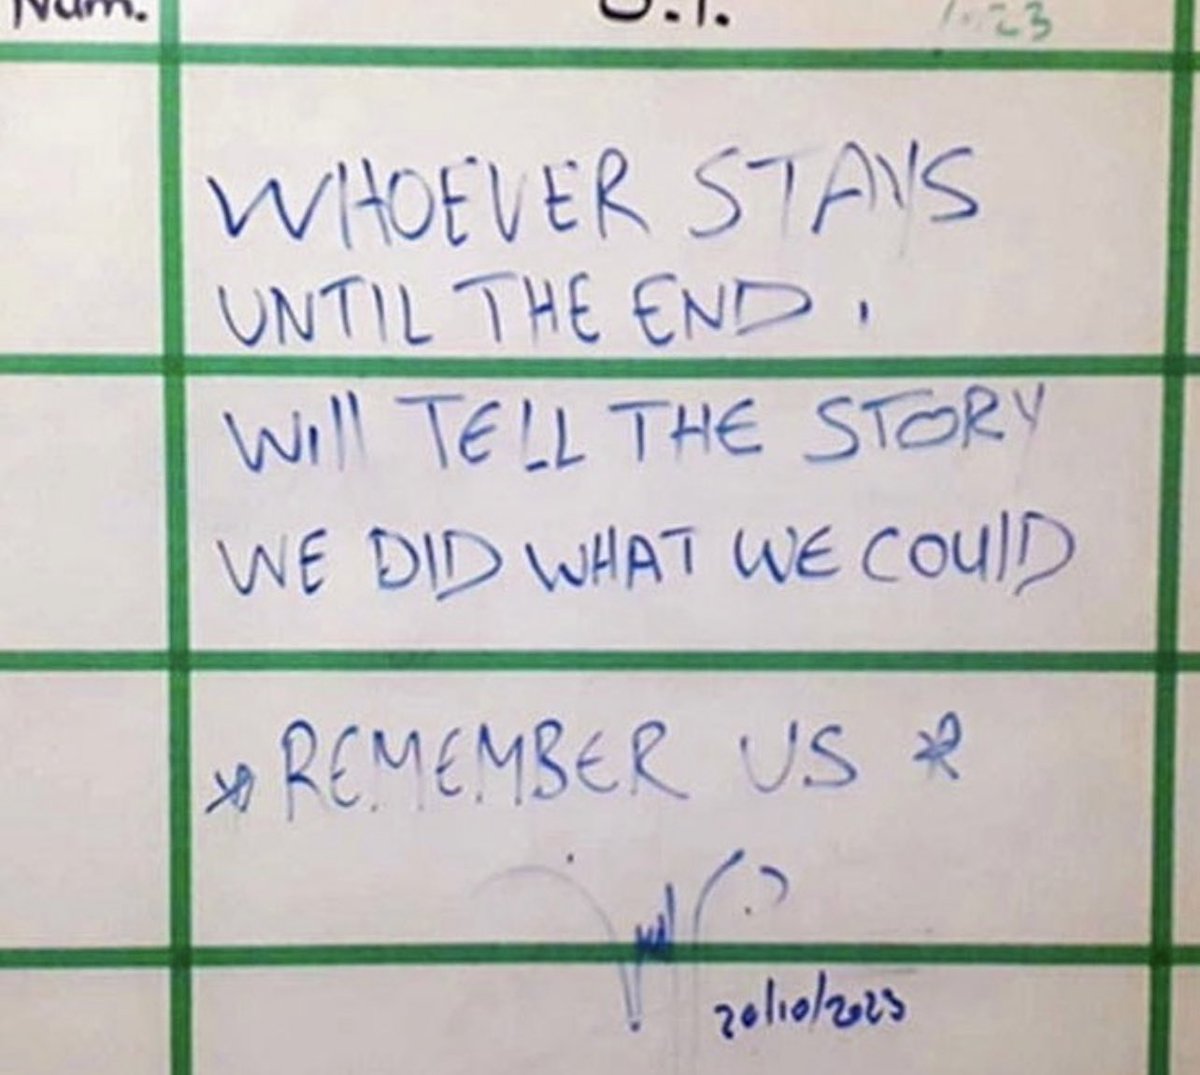 Num.
WHOEVER STAYS
UNTIL THE END.
Will TELL THE STORY
WE DID WHAT WE COUlD
*REMEMBER US *
20/10/2023